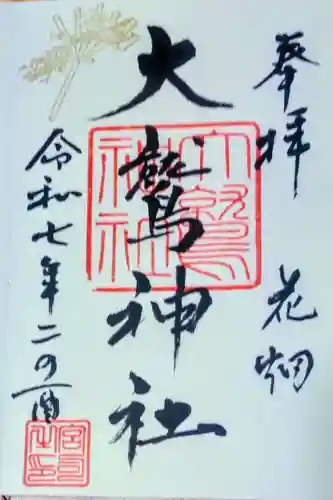 奉拝 花畑
大鷲神社
令和七年二の酉
大鷲神社
宮司之印